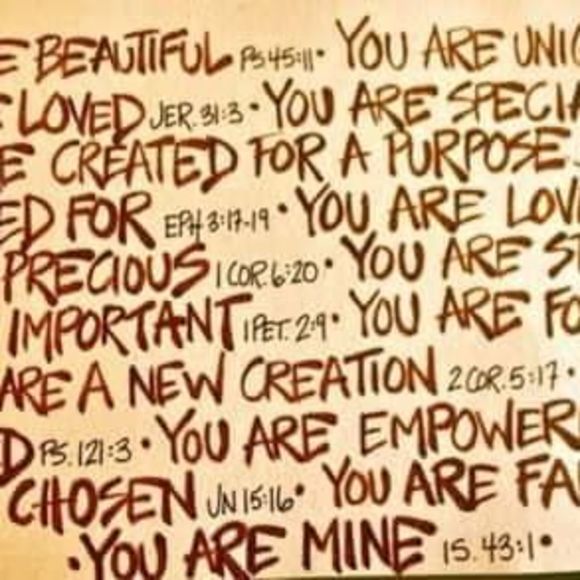 E BEAUTIFUL PS 45:11 • YOU ARE UNIQ
E LOVED JER. 31:3 • YOU ARE SPECIA
E CREATED FOR A PURPOSE.
ED FOR EPH 3:17-19 • YOU ARE LOV
PRECIOUS 1 COR. 6:20 • YOU ARE ST
IMPORTANT 1 PET. 2:9 • YOU ARE FO
ARE A NEW CREATION 2 COR. 5:17 •
D PS. 121:3 • YOU ARE EMPOWER
CHOSEN JN 15:16 • YOU ARE FA
• YOU ARE MINE IS. 43:1 •